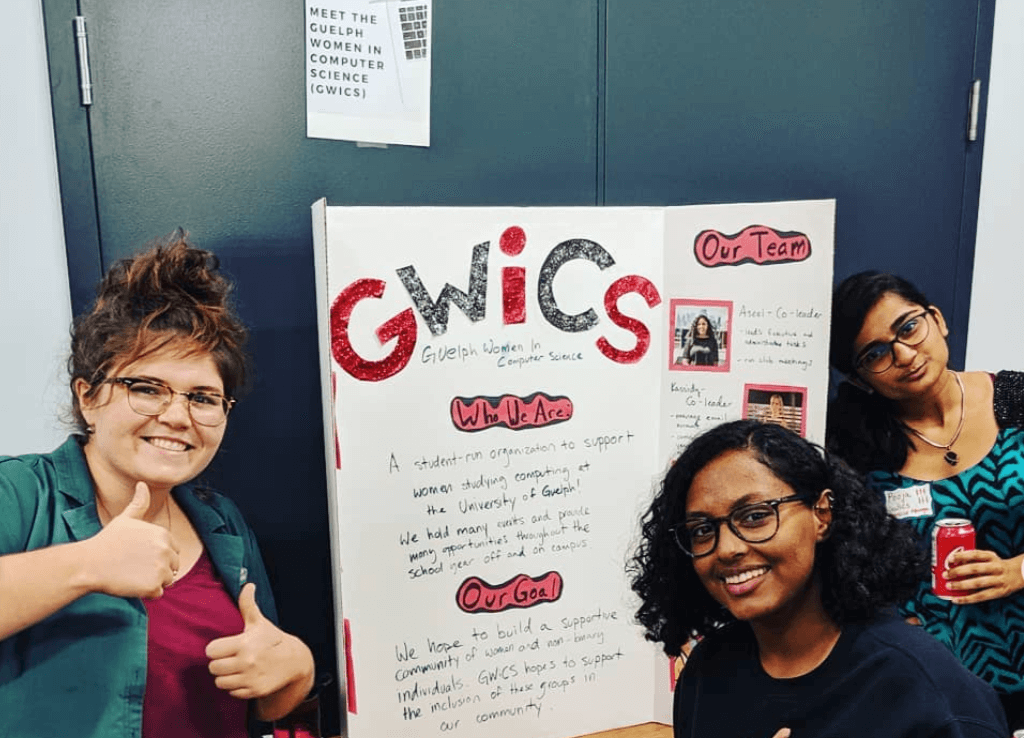 MEET THE
GUELPH
WOMEN IN
COMPUTER
SCIENCE
(GWICS)
GWiCS
GUelph Women In
Computer Science
Who We Are:
A student-run organization to support
women studying computing at
the University of Guelph!
We hold many events and provide
many opportunities throughout the
school year off and on campus.
Our Goal
We hope to build a supportive
community of women and non-binary
individuals. GWiCS hopes to support
the inclusion of these groups in
our community.
Our Team
Aseel - Co-leader
- leads executive and
administrative tasks
- run club meetings
Kassidy-
Co-leader
email
Pooja